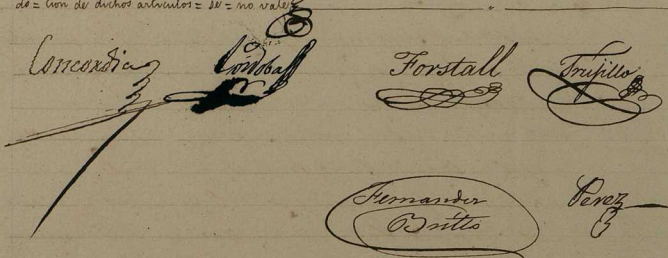 do = cion de dichos articulos = se = no vale
Concordia Córdoba Forstall Trujillo
Fernandez Perez
Britto